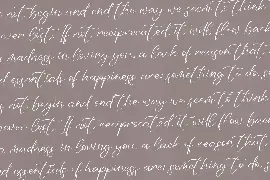 not begin and end the way we seem to think
ever lost. If not reciprocated, it will flow back
madness in loving you, a lack of reason that
essentials of happiness are: something to do, s
not begin and end the way we seem to think
ever lost. If not reciprocated, it will flow back
madness in loving you, a lack of reason that
essentials of happiness are: something to do, s